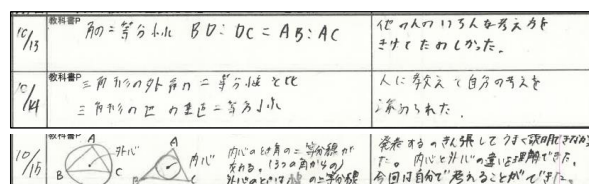 10/13
教科書P
角の二等分線 BD:DC=AB:AC
他の人のいろんな考え方を
きけてたのしかった。
10/14
教科書P
三角形の外角の二等分線と比
三角形の辺の垂直二等分線
人に教えて自分の考えを
深められた。
10/15
教科書P
A
B
C
外心
A
B
C
内心
内心とは角の二等分線が
交わる。(3つの角からの)
外心とは 辺の二等分線
発表するのきん張してうまく説明できなかっ
た。内心と外心の違いを理解できた。
今回は自分で考えることができた。